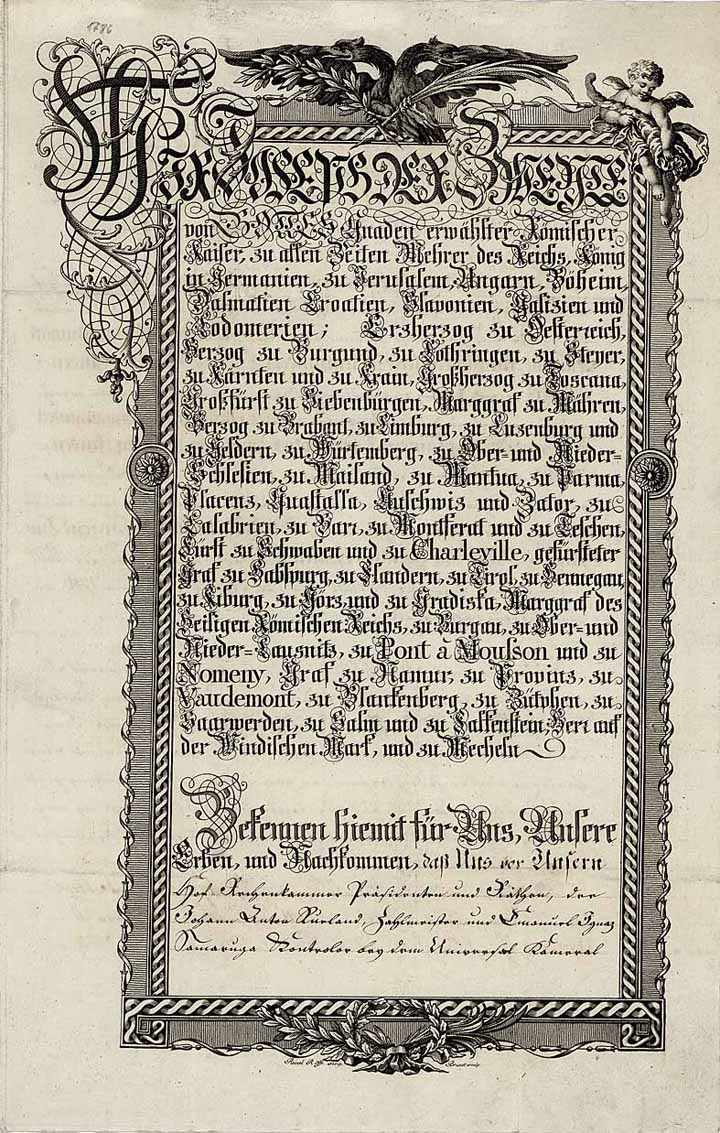 1786
WIR JOSEPH DER ZWEYTE
von GOTTES Gnaden erwählter Römischer
Kaiser, zu allen Zeiten Mehrer des Reichs, König
in Germanien, zu Jerusalem, Ungarn, Böheim,
Dalmatien Croatien, Slavonien, Galizien und
Lodomerien; Erzherzog zu Oesterreich,
Herzog zu Burgund, zu Lothringen, zu Steyer,
zu Kärnten und zu Krain, Großherzog zu Toscana,
Großfürst zu Siebenbürgen, Marggraf zu Mähren,
Herzog zu Brabant, zu Limburg, zu Luzenburg und
zu Geldern, zu Würtemberg, zu Ober= und Nieder=
Schlesien, zu Mailand, zu Mantua, zu Parma,
Placenz, Guastalla, Auschwiz und Zator, zu
Calabrien, zu Bari, zu Montferat und zu Teschen,
Fürst zu Schwaben und zu Charleville, gefürsteter
Graf zu Habspurg, zu Flandern, zu Tirol, zu Hennegau,
zu Kiburg, zu Görz, und zu Gradiska, Marggraf des
Heiligen Römischen Reichs, zu Burgau, zu Ober= und
Nieder=Lausnitz, zu Pont à Mousson und zu
Nomeny, Graf zu Namur, zu Provinz, zu
Vaudemont, zu Blankenberg, zu Zütphen, zu
Saarwerden, zu Salm und zu Falkenstein, Herr auf
der Windischen Mark, und zu Mecheln
Bekennen hiemit für Uns, Unsere
Erben, und Nachkommen, daß Uns der Unsern
Hof Rechenkammer Präsidenten und Räthen, der
Johann Anton Rueland, Zahlmeister und Emanuel Ignaz
Samaruga Kontrolor bey dem Universal Kameral